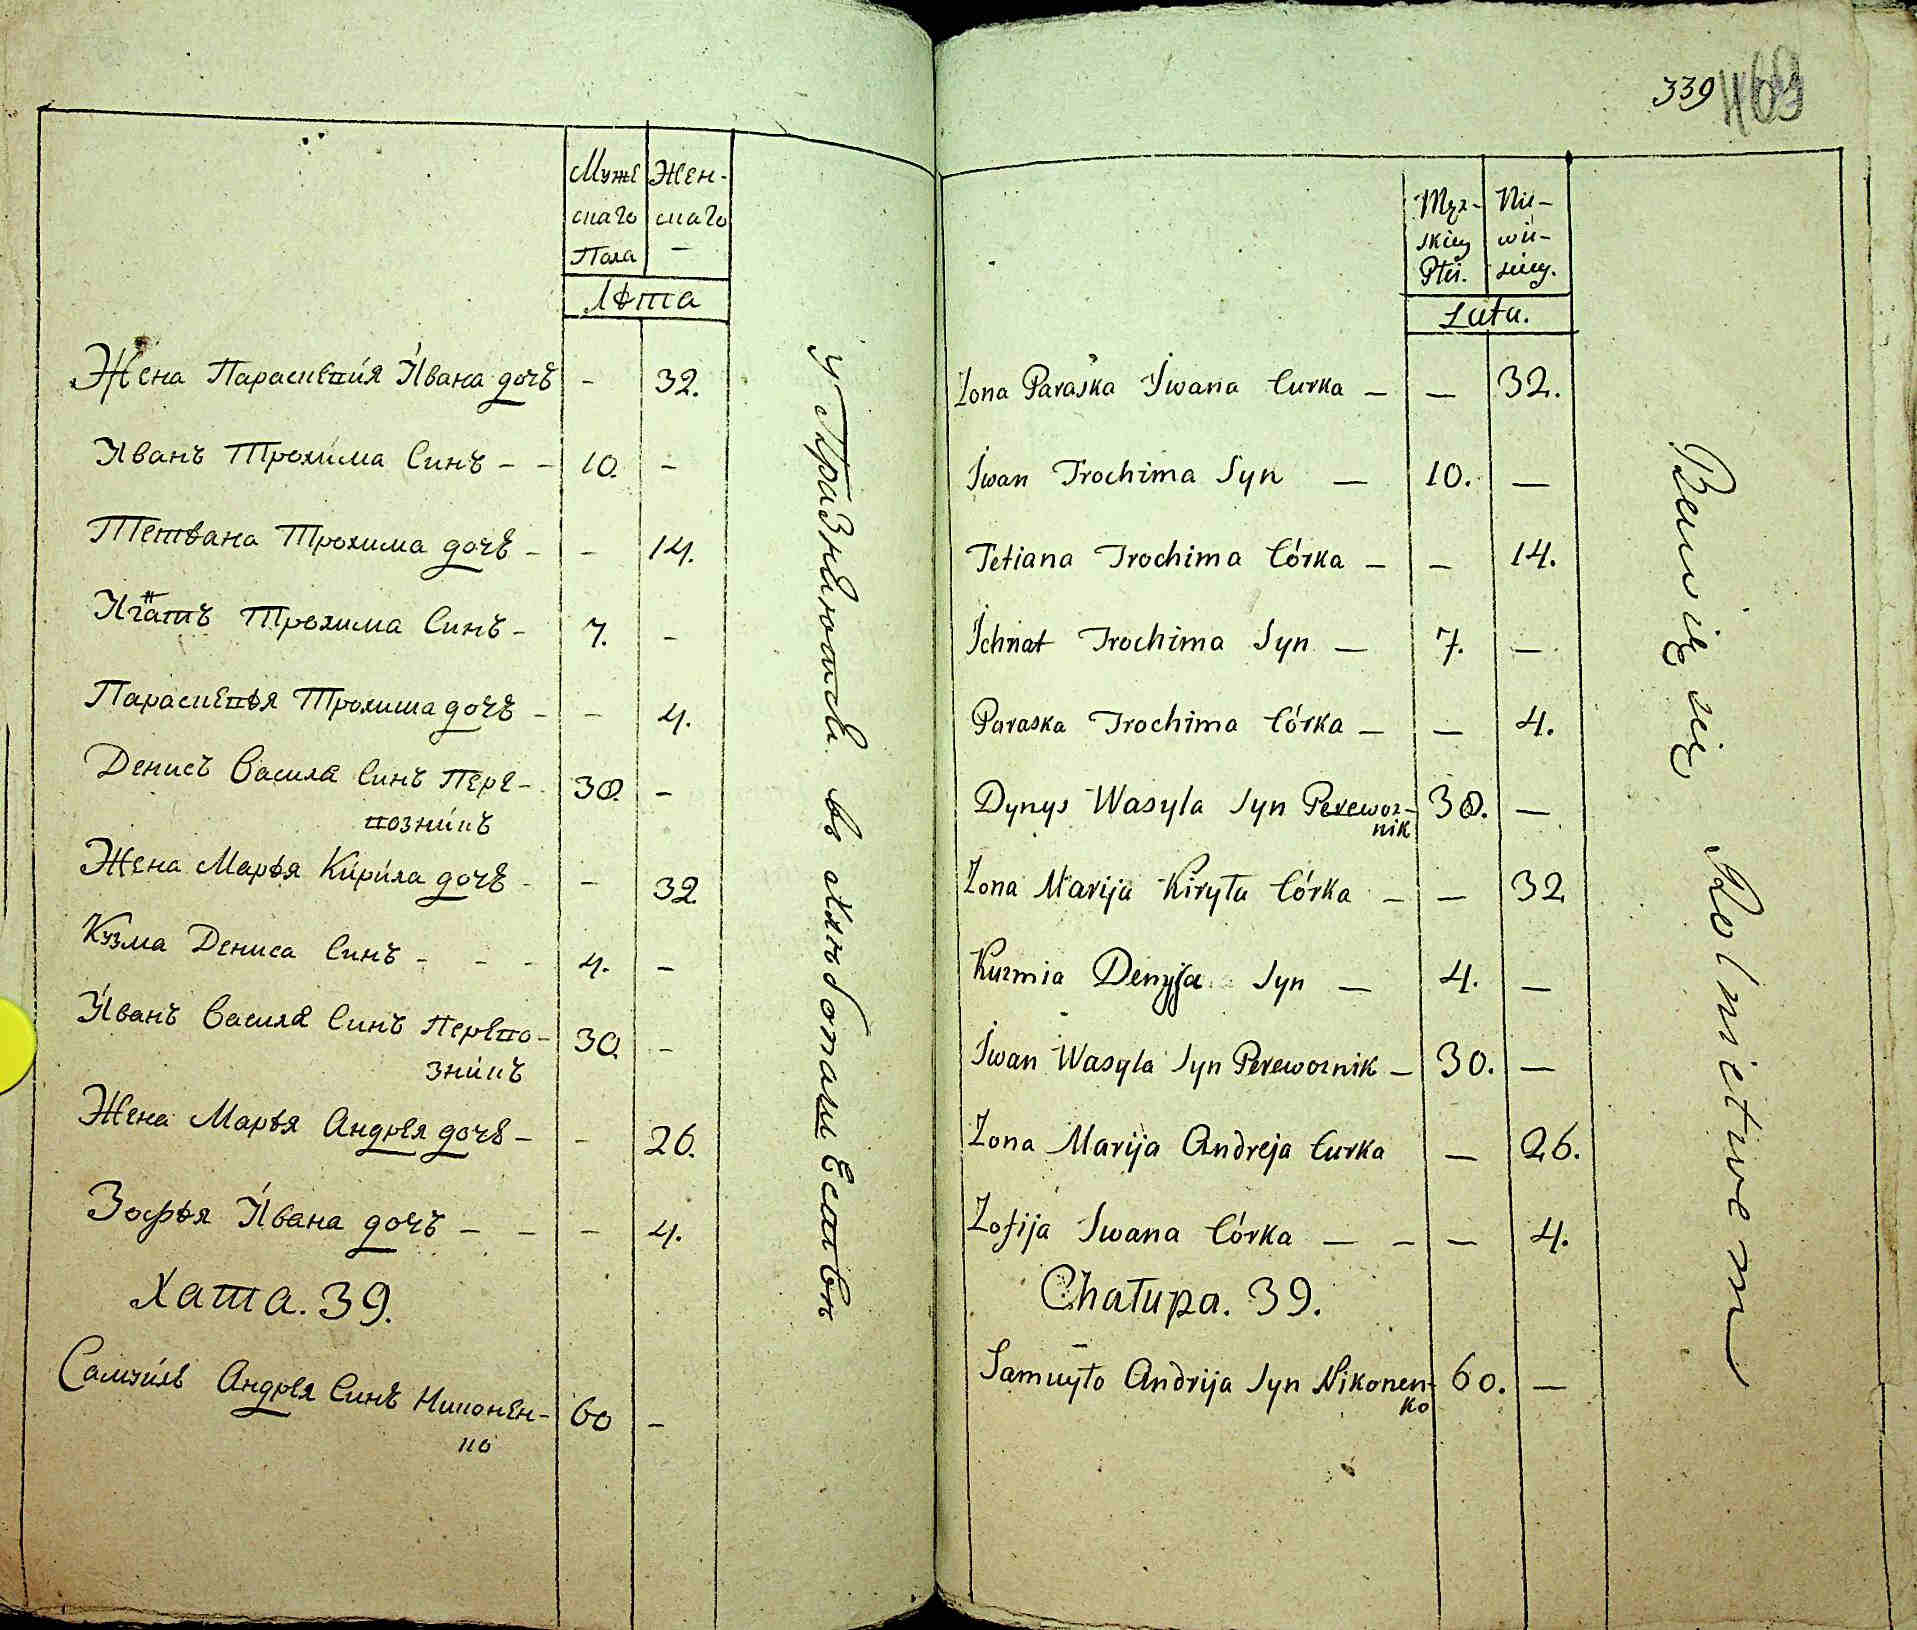 Муже Жен-
скаго скаго
Пола -
Лѣта
Жена Параскевія Ивана дочь - 32.
Иванъ Трохима Синъ - - 10. -
Тетвана Трохима дочь - - 14.
Игатъ Трохима Синъ - 7. -
Параскевія Трохима дочь - - 4.
Денисъ Василя Синъ Пере- 38. -
возникъ
Жена Марія Кирила дочь - - 32.
Кузма Дениса Синъ - - - 4. -
Иванъ Василя Синъ Перево- 30. -
зникъ
Жена Марія Андрея дочь - - 26.
Зофія Ивана дочъ - - - 4.
Хата. 39.
Самуйлъ Андрея Синъ Никонен- 60 -
ко
упражняются въ хлѣбопашествѣ
339
469
Męz- Nie-
skiey wie-
Płci. sciey.
Lata.
Zona Paraska Iwana Curka - - 32.
Iwan Trochima Syn - 10. -
Tetiana Trochima Córka - - 14.
Ichnat Trochima Syn - 7. -
Paraska Trochima Córka - - 4.
Dynys Wasyla Syn Perewoz- 38. -
nik
Zona Marija Kiryła Córka - - 32
Kuzmia Denysa Syn - 4. -
Iwan Wasyla Syn Perewoznik - 30. -
Zona Marija Andreja Curka - 26.
Zofija Iwana Córka - - - 4.
Chałupa. 39.
Samuyło Andrija Syn Nikonen- 60. -
ko
Bawią się Rolnictwem